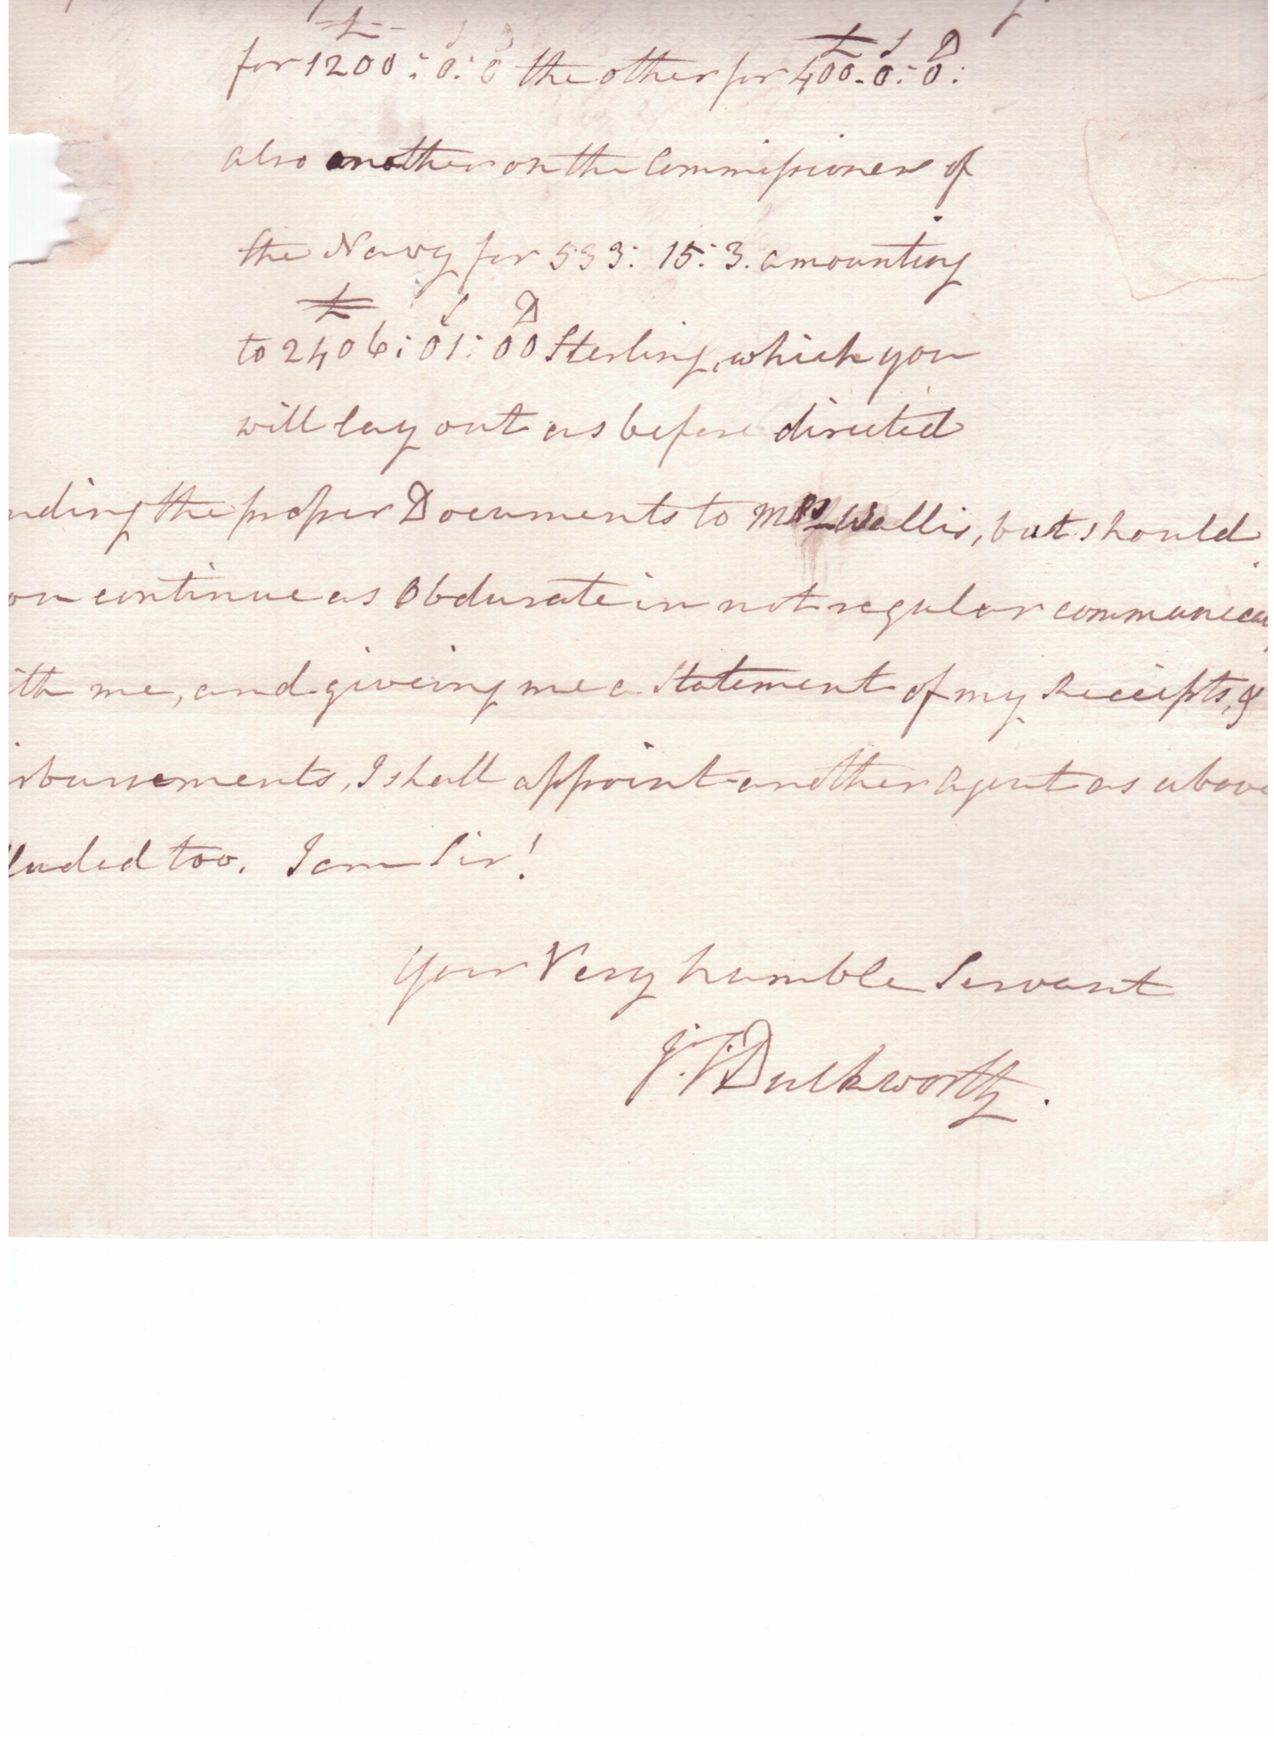 £
for 1200: 0: 0 the other for 400-0:-0:
£ S D
also another on the Commissioners of
the Navy for 533: 15: 3. amounting
£ S D
to 2406: 01: 00 Sterling, which you
will lay out as before directed
nding the proper Documents to Mrs Wallis, but should
ou continue as Obdurate in not regular communica
ith me, and giveing me a Statement of my Receipts, &
sbursements, I shall appoint another Agent as above
luded too. I am Sir!
Your Very humble Servant
J. T. Duckworth.